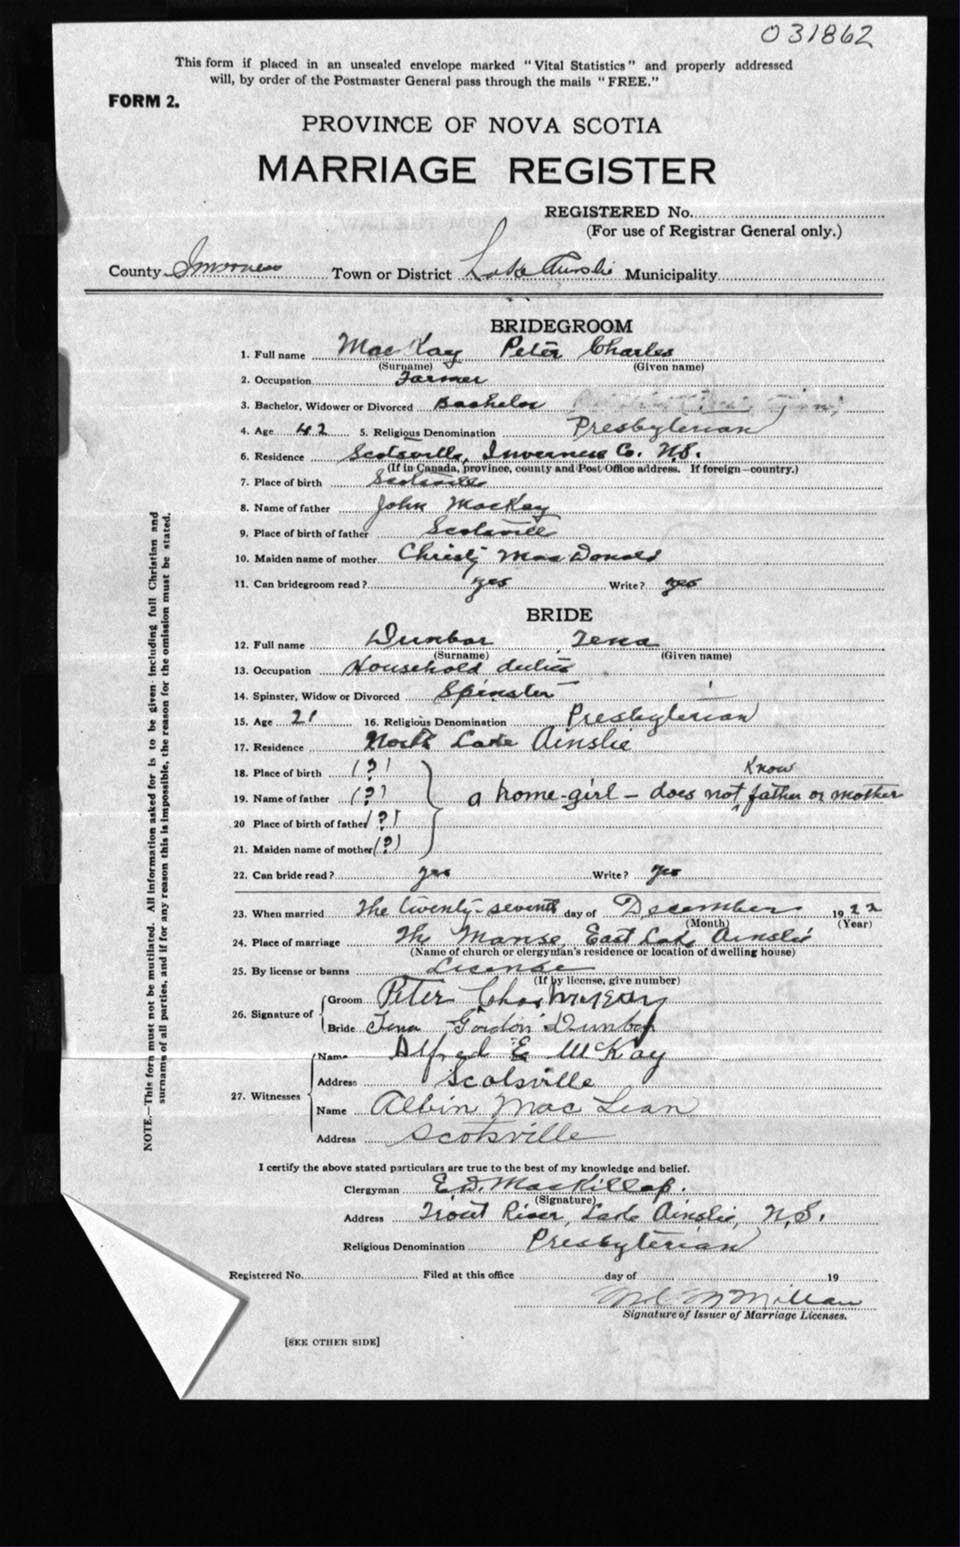 031862
This form if placed in an unsealed envelope marked "Vital Statistics" and properly addressed
will, by order of the Postmaster General pass through the mails "FREE."
FORM 2.
PROVINCE OF NOVA SCOTIA
MARRIAGE REGISTER
REGISTERED No.
(For use of Registrar General only.)
County Inverness Town or District Lake Ainslie Municipality
BRIDEGROOM
1. Full name MacKay Peter Charles
(Surname) (Given name)
2. Occupation Farmer
3. Bachelor, Widower or Divorced Bachelor
4. Age 42 5. Religious Denomination Presbyterian
6. Residence Scotsville, Inverness Co. N.S.
(If in Canada, province, county and Post Office address. If foreign—country.)
7. Place of birth Scotsville
8. Name of father John MacKay
9. Place of birth of father Scotsville
10. Maiden name of mother Christy MacDonald
11. Can bridegroom read? yes Write? yes
BRIDE
12. Full name Dunbar Tena
(Surname) (Given name)
13. Occupation Household duties
14. Spinster, Widow or Divorced Spinster
15. Age 21 16. Religious Denomination Presbyterian
17. Residence North Lake Ainslie
18. Place of birth (?) know
19. Name of father (?) a home-girl — does not father or mother
20 Place of birth of father (?)
21. Maiden name of mother (?)
22. Can bride read? yes Write? yes
23. When married The twenty-seventh day of December 1922
(Month) (Year)
24. Place of marriage The Manse, East Lake Ainslie
(Name of church or clergyman's residence or location of dwelling house)
25. By license or banns License
(If by license, give number)
26. Signature of Groom Peter Chas McKay
Bride Tena Gordon Dunbar
27. Witnesses Name Alfred E McKay
Address Scotsville
Name Albin MacLean
Address Scotsville
I certify the above stated particulars are true to the best of my knowledge and belief.
Clergyman E.D. MacKillop.
(Signature)
Address Trout River, Lake Ainslie, N.S.
Religious Denomination Presbyterian
Registered No. Filed at this office day of 19
McMillan
Signature of Issuer of Marriage Licenses.
[SEE OTHER SIDE]
NOTE.—This form must not be mutilated. All information asked for is to be given including full Christian and
surnames of all parties, and if for any reason this is impossible, the reason for the omission must be stated.